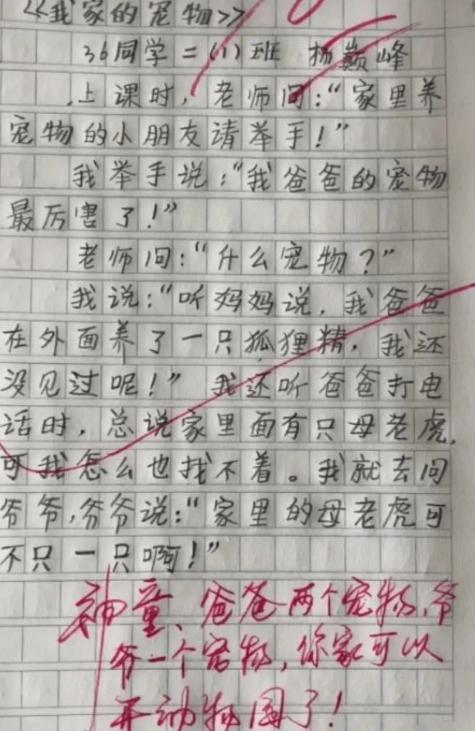 《我家的宠物》
36同学二(1)班 杨巅峰
上课时，老师问：“家里养
宠物的小朋友请举手！”
我举手说：“我爸爸的宠物
最厉害了！”
老师问：“什么宠物？”
我说：“听妈妈说，我爸爸
在外面养了一只狐狸精，我还
没见过呢！” 我还听爸爸打电
话时，总说家里面有只母老虎，
可我怎么也找不着。我就去问
爷爷，爷爷说：“家里的母老虎可
不只一只啊！”
神童、爸爸两个宠物，爷
爷一个宠物，你家可以
开动物园了！